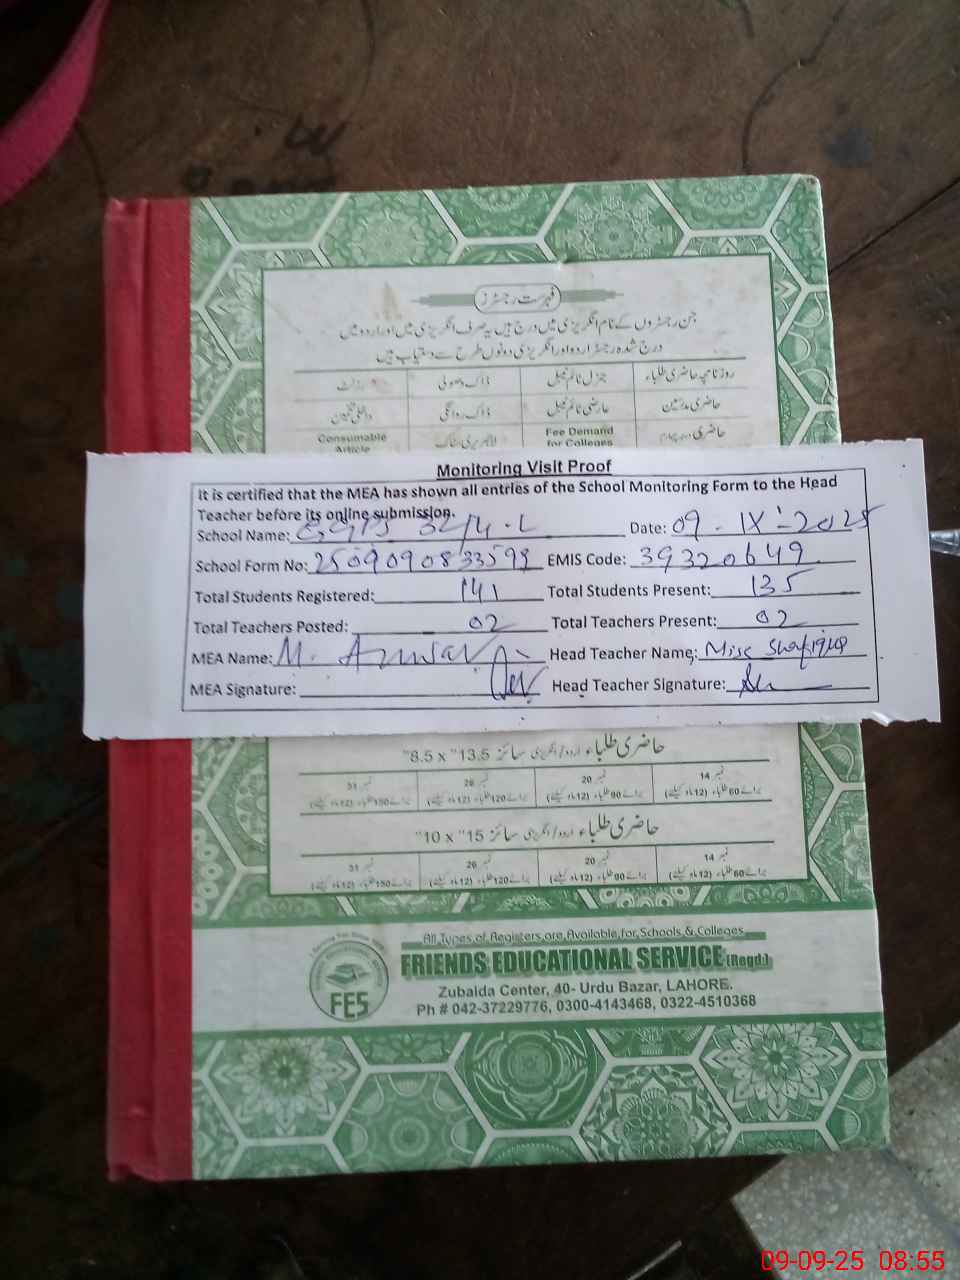 فہرست رجسٹرز
جن رجسٹروں کے نام انگریزی میں درج ہیں یہ صرف انگریزی میں اور اردو میں
درج شدہ رجسٹر اردو اور انگریزی دونوں طرح سے دستیاب ہیں
روزنامچہ حاضری طلباء جنرل ٹائم ٹیبل ڈاک وصولی
حاضری مدرسین عارضی ٹائم ٹیبل ڈاک روانگی داخل
حاضری Fee Demand for Colleges لائبریری سٹاک Consumable Article
Monitoring Visit Proof
It is certified that the MEA has shown all entries of the School Monitoring Form to the Head
Teacher before its online submission.
School Name: GGPS 32/4-L Date: 09-IX-2025
School Form No: 250909083359 EMIS Code: 39320649
Total Students Registered: 141 Total Students Present: 135
Total Teachers Posted: 02 Total Teachers Present: 02
MEA Name: M. Head Teacher Name: Miss
MEA Signature: Head Teacher Signature:
حاضری طلباء اردو/انگریزی سائز 13.5" x 8.5"
نمبر 14 نمبر 20 نمبر 26 نمبر 31
برائے 60 طلباء (12 ماہ کیلئے) برائے 90 طلباء (12 ماہ کیلئے) برائے 120 طلباء (12 ماہ کیلئے) برائے 150 طلباء (12 ماہ کیلئے)
حاضری طلباء اردو/انگریزی سائز 15" x 10"
نمبر 14 نمبر 20 نمبر 26 نمبر 31
برائے 60 طلباء (12 ماہ کیلئے) برائے 90 طلباء (12 ماہ کیلئے) برائے 120 طلباء (12 ماہ کیلئے) برائے 150 طلباء (12 ماہ کیلئے)
All Types of Registers are Available for Schools & Colleges
FRIENDS EDUCATIONAL SERVICE (Regd.)
FES
Zubaida Center, 40- Urdu Bazar, LAHORE.
Ph # 042-37229776, 0300-4143468, 0322-4510368
09-09-25 08:55